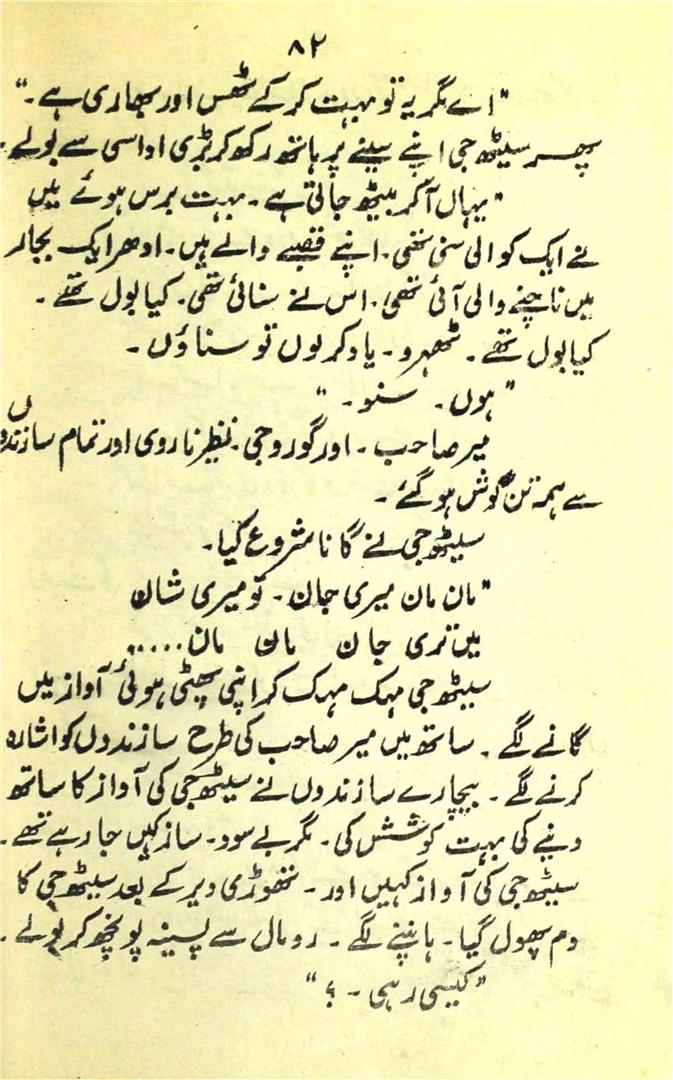 ۸۲
"اے مگر یہ تو بہت کر کے ٹھس اور بھاری ہے۔"
پھر سیٹھ جی اپنے سینے پر ہاتھ رکھ کر بڑی اداسی سے بولے۔
"یہاں آکر بیٹھ جاتی ہے۔ بہت برس ہوئے میں
نے ایک کوالی سنی تھی۔ اپنے قصبے والے ہیں۔ ادھر ایک بجار
میں ناچنے والی آئی تھی۔ اس نے سنائی تھی۔ کیا بول تھے۔
کیا بول تھے۔ ٹھہرو۔ یاد کر لوں تو سناؤں۔
"ہوں۔ سنو۔"
میر صاحب۔ اور گورو جی۔ نظیر ناروی اور تمام سازندوں
سے ہمہ تن گوش ہو گئے۔
سیٹھ جی نے گانا شروع کیا۔
"مان مان میری جان۔ تو میری شان
میں تری جان مان مان.....
سیٹھ جی مہک مہک کر اپنی پھٹی ہوئی آواز میں
گانے لگے۔ ساتھ میں میر صاحب کی طرح سازندوں کو اشارہ
کرنے لگے۔ بیچارے سازندوں نے سیٹھ جی کی آواز کا ساتھ
دینے کی بہت کوشش کی۔ مگر بے سود۔ ساز کہیں جا رہے تھے۔
سیٹھ جی کی آواز کہیں اور۔ تھوڑی دیر کے بعد سیٹھ جی کا
دم پھول گیا۔ ہانپنے لگے۔ رومال سے پسینہ پونچھ کر بولے۔
"کیسی رہی۔؟"